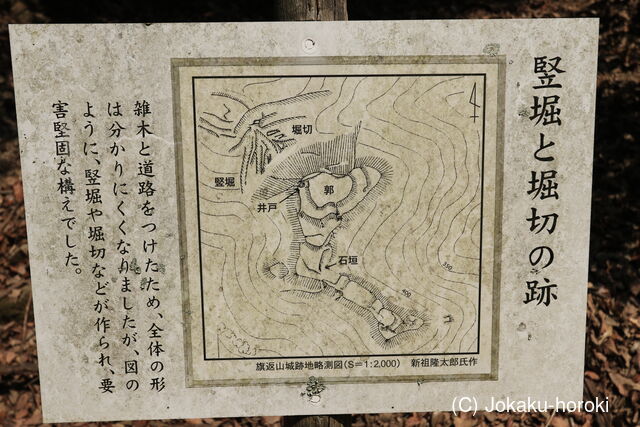 竪堀と堀切の跡
堀切
竪堀
郭
井戸
石垣
350
400
旗返山城跡地略測図(S=1:2,000) 新祖隆太郎氏作
雑木と道路をつけたため、全体の形
は分かりにくくなりましたが、図の
ように、竪堀や堀切などが作られ、要
害堅固な構えでした。
(C) Jokaku-horoki